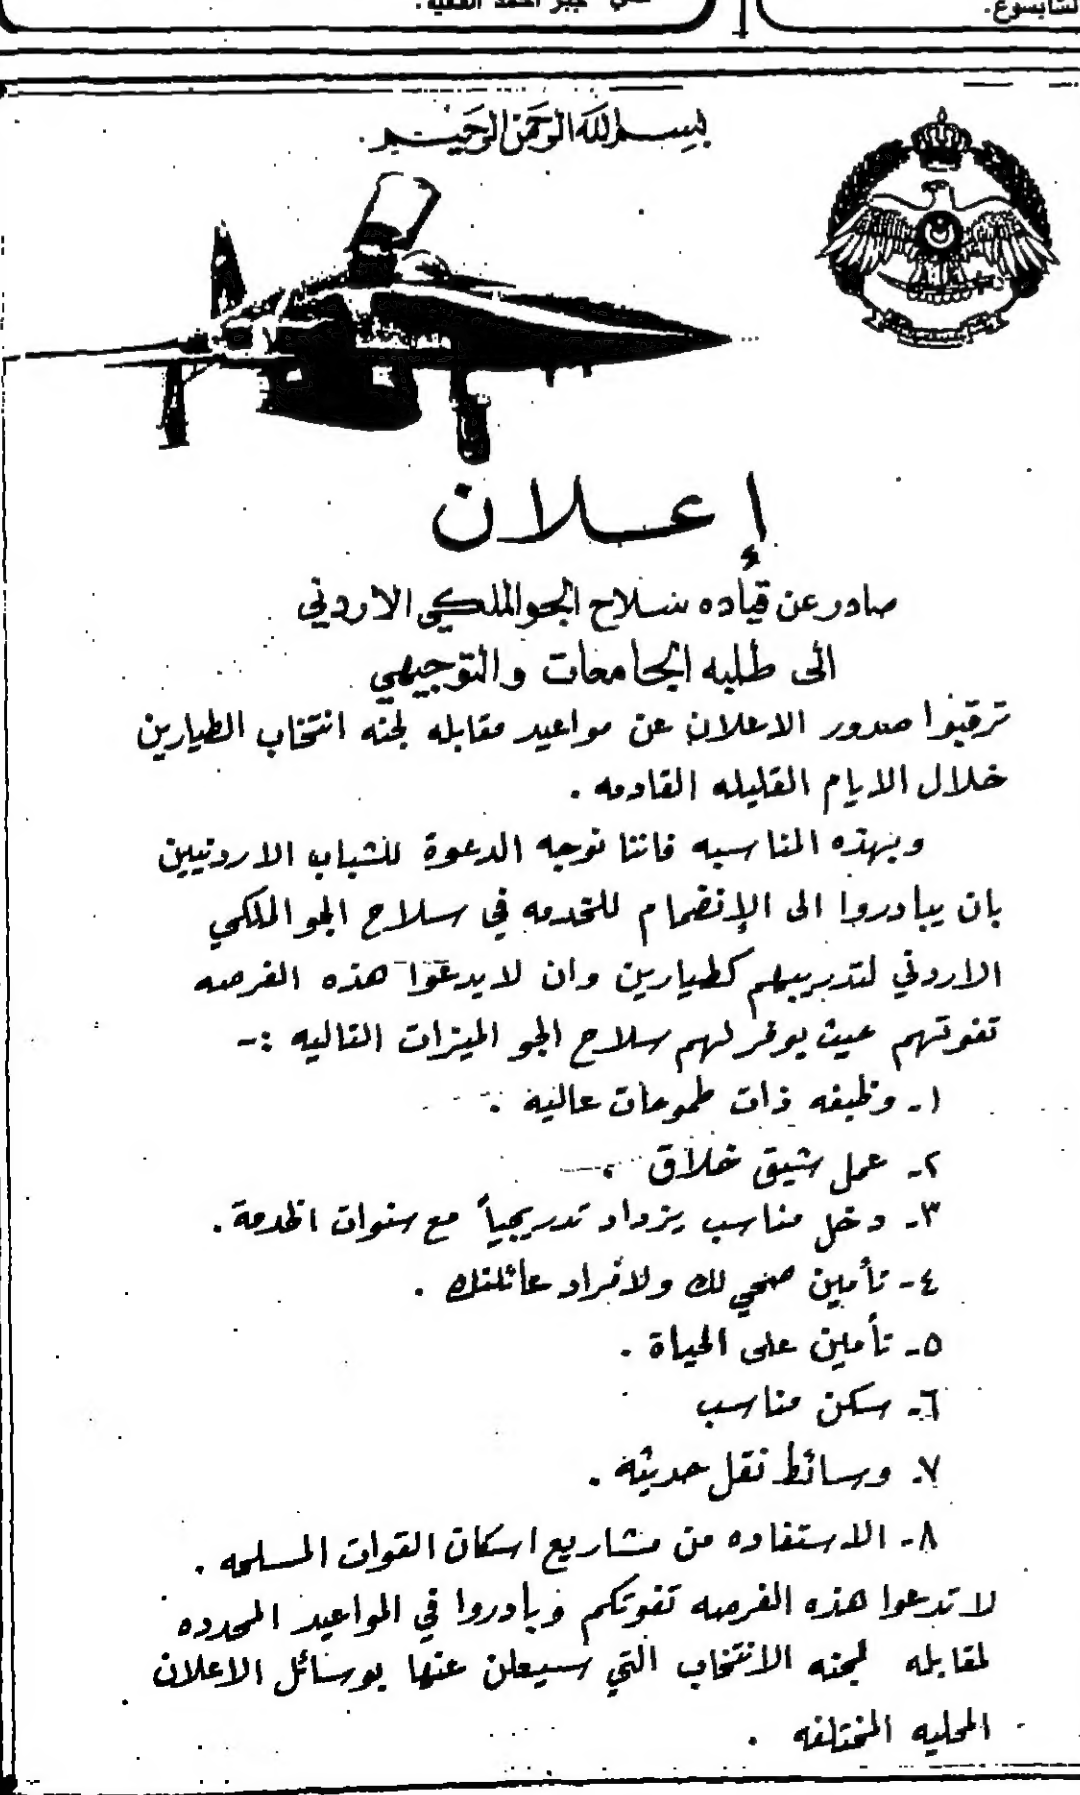 لسابسوع.
بسم الله الرحمن الرحيم
إعلان
صادر عن قياده سلاح الجو الملكي الاردني
الى طلبه الجامعات والتوجيهي
ترقبوا صدور الاعلان عن مواعيد مقابله لجنه انتخاب الطيارين
خلال الايام القليله القادمه .
وبهذه المناسبه فاننا نوجه الدعوة للشباب الاردنيين
بان يبادروا الى الإنضمام للخدمه في سلاح الجو الملكي
الاردني لتدريبهم كطيارين وان لا يدعوا هذه الفرصه
تفوتهم حيث يوفر لهم سلاح الجو الميزات التاليه :-
١- وظيفه ذات طموحات عاليه .
٢- عمل شيق خلاق .
٣- دخل مناسب يزداد تدريجياً مع سنوات الخدمة .
٤- تأمين صحي لك ولأفراد عائلتك .
٥- تأمين على الحياة .
٦- سكن مناسب
٧- وسائط نقل حديثه .
٨- الاستفاده من مشاريع اسكان القوات المسلحه .
لا تدعوا هذه الفرصه تفوتكم وبادروا في المواعيد المحدده
لمقابله لجنه الانتخاب التي سيعلن عنها بوسائل الاعلان
المحليه المختلفه .